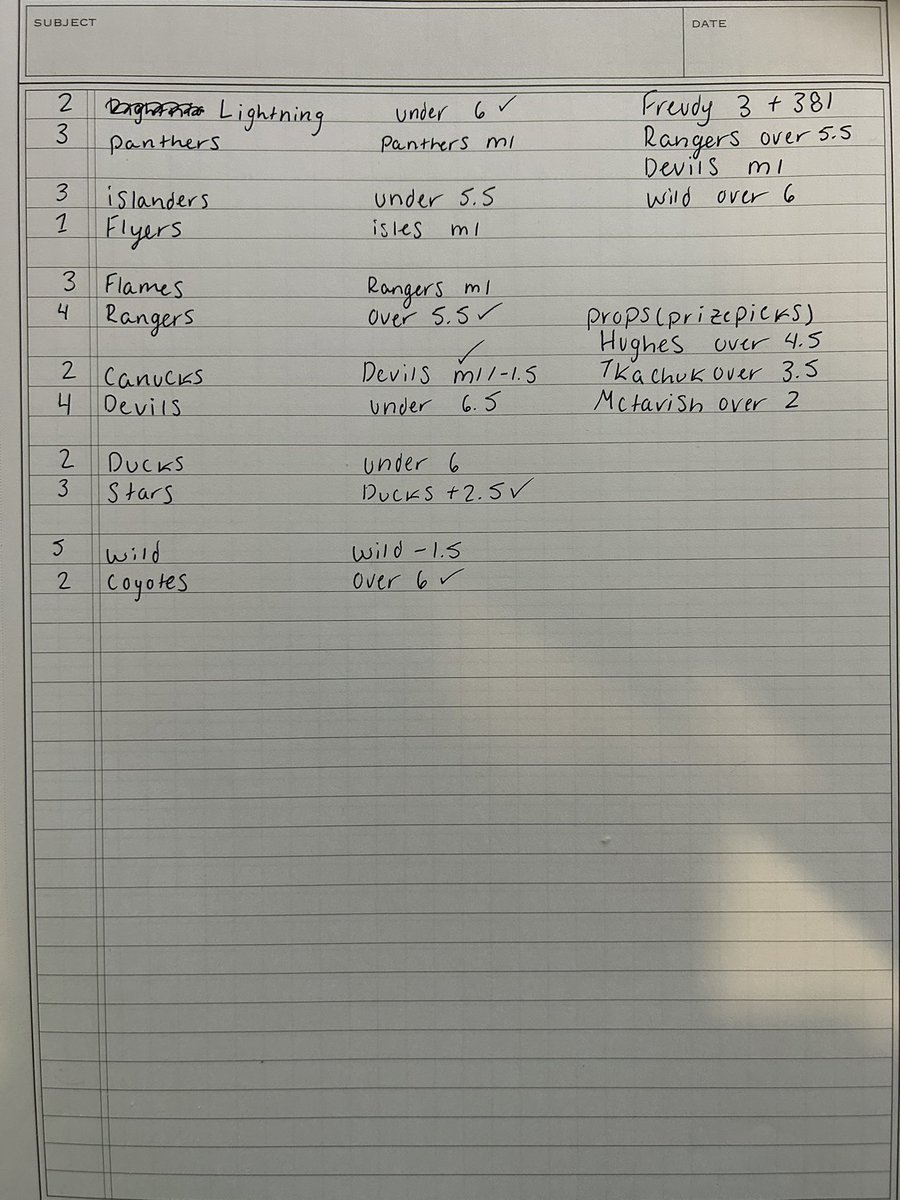 SUBJECT DATE
2 Lightning under 6 ✓ Freddy 3 +381
3 panthers panthers ml Rangers over 5.5
Devils ml
3 islanders under 5.5 wild over 6
1 Flyers isles ml
3 Flames Rangers ml
4 Rangers over 5.5 ✓ props(prizepicks)
Hughes over 4.5
2 Canucks Devils ml/-1.5 ✓ Tkachuk over 3.5
4 Devils under 6.5 Mctavish over 2
2 Ducks under 6
3 Stars Ducks +2.5 ✓
5 wild wild -1.5
2 Coyotes over 6 ✓